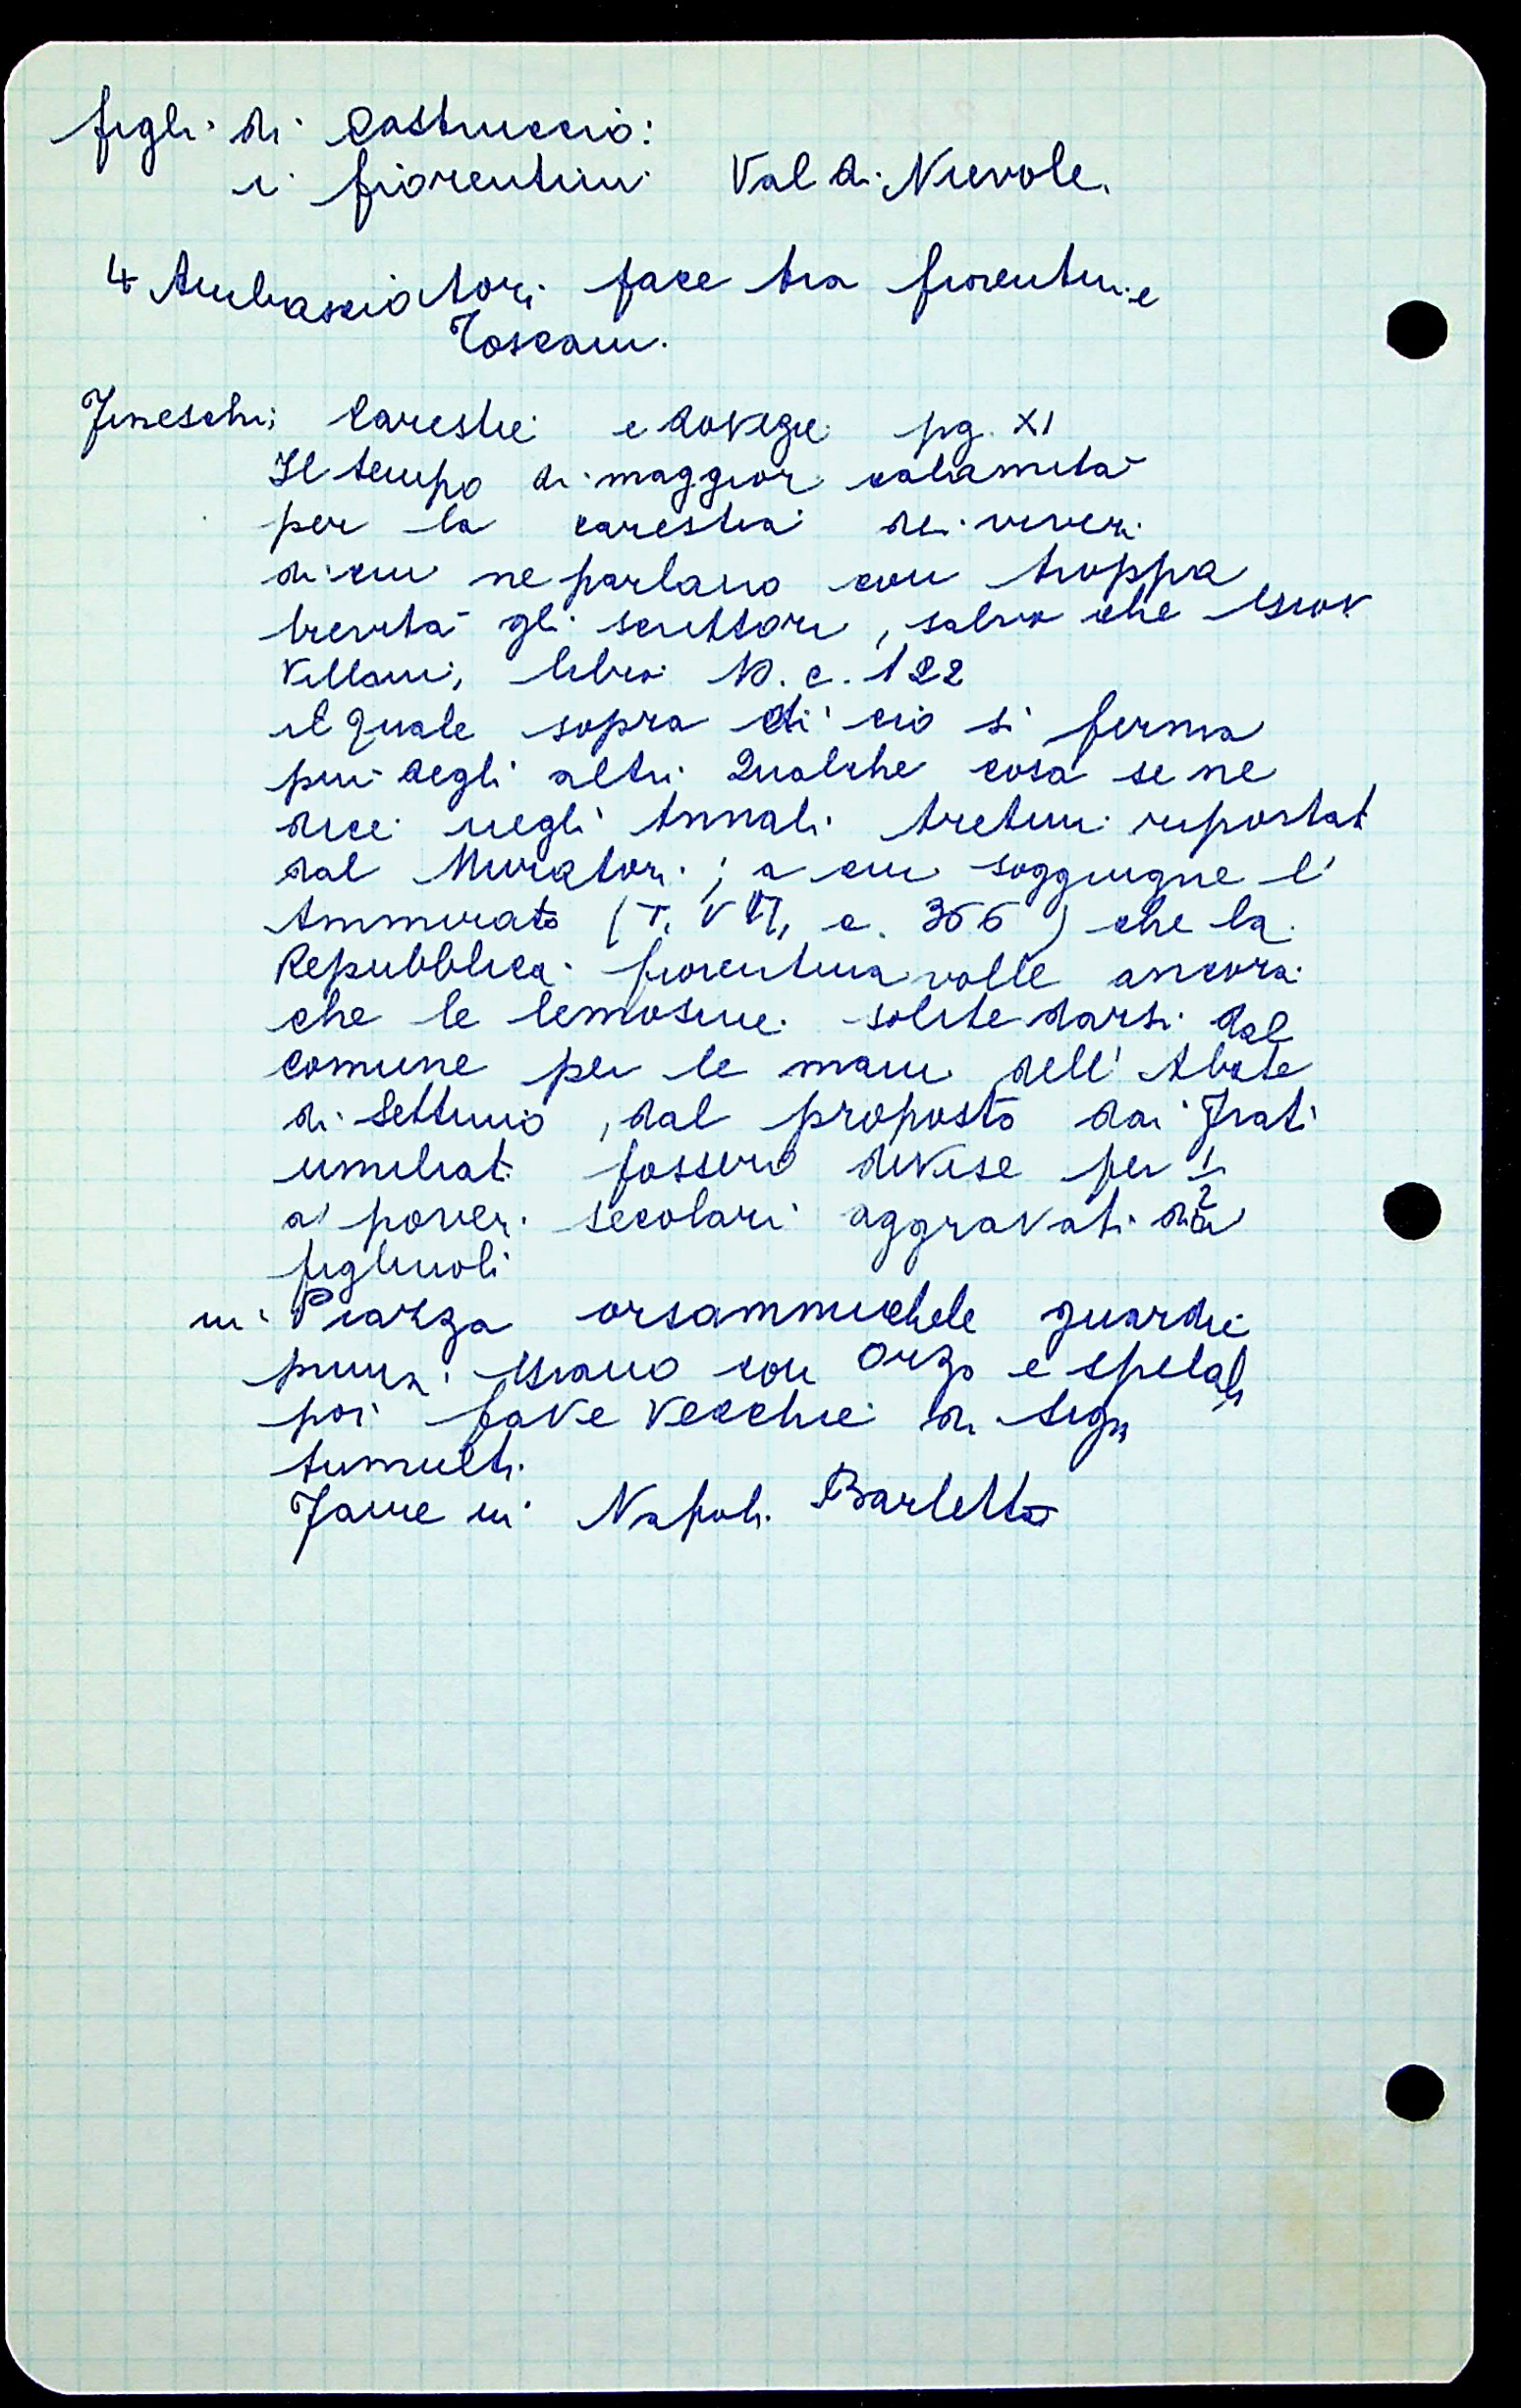 figli di Castruccio:
i fiorentini Val di Nievole.
4 Ambasciatori pace tra fiorentini e
Toscani.
Fineschi; Carestie e dovizie pg. XI
Il tempo di maggior calamità
per la carestia dei viveri
di cui ne parlano con troppa
brevità gli scrittori, salvo che Giov
Villani, libro 10. c. 122
il quale sopra di ciò si ferma
più degli altri Qualche cosa se ne
dice negli Annali Aretini riportat
dal Muratori; a cui soggiugne l'
Ammirato (T. VII, c. 356) che la
Repubblica fiorentina volle ancora
che le lemosine solite darsi dal
comune per le mani dell'Abate
di Settimo, dal proposto dai Frati
umiliati fossero divise per 1/2
a' poveri secolari aggravati da
figliuoli
in Piazza orsammichele guardie
prima grano con orzo e spelda
poi fave vecchie di
tumulti.
Fame in Napoli Barletta